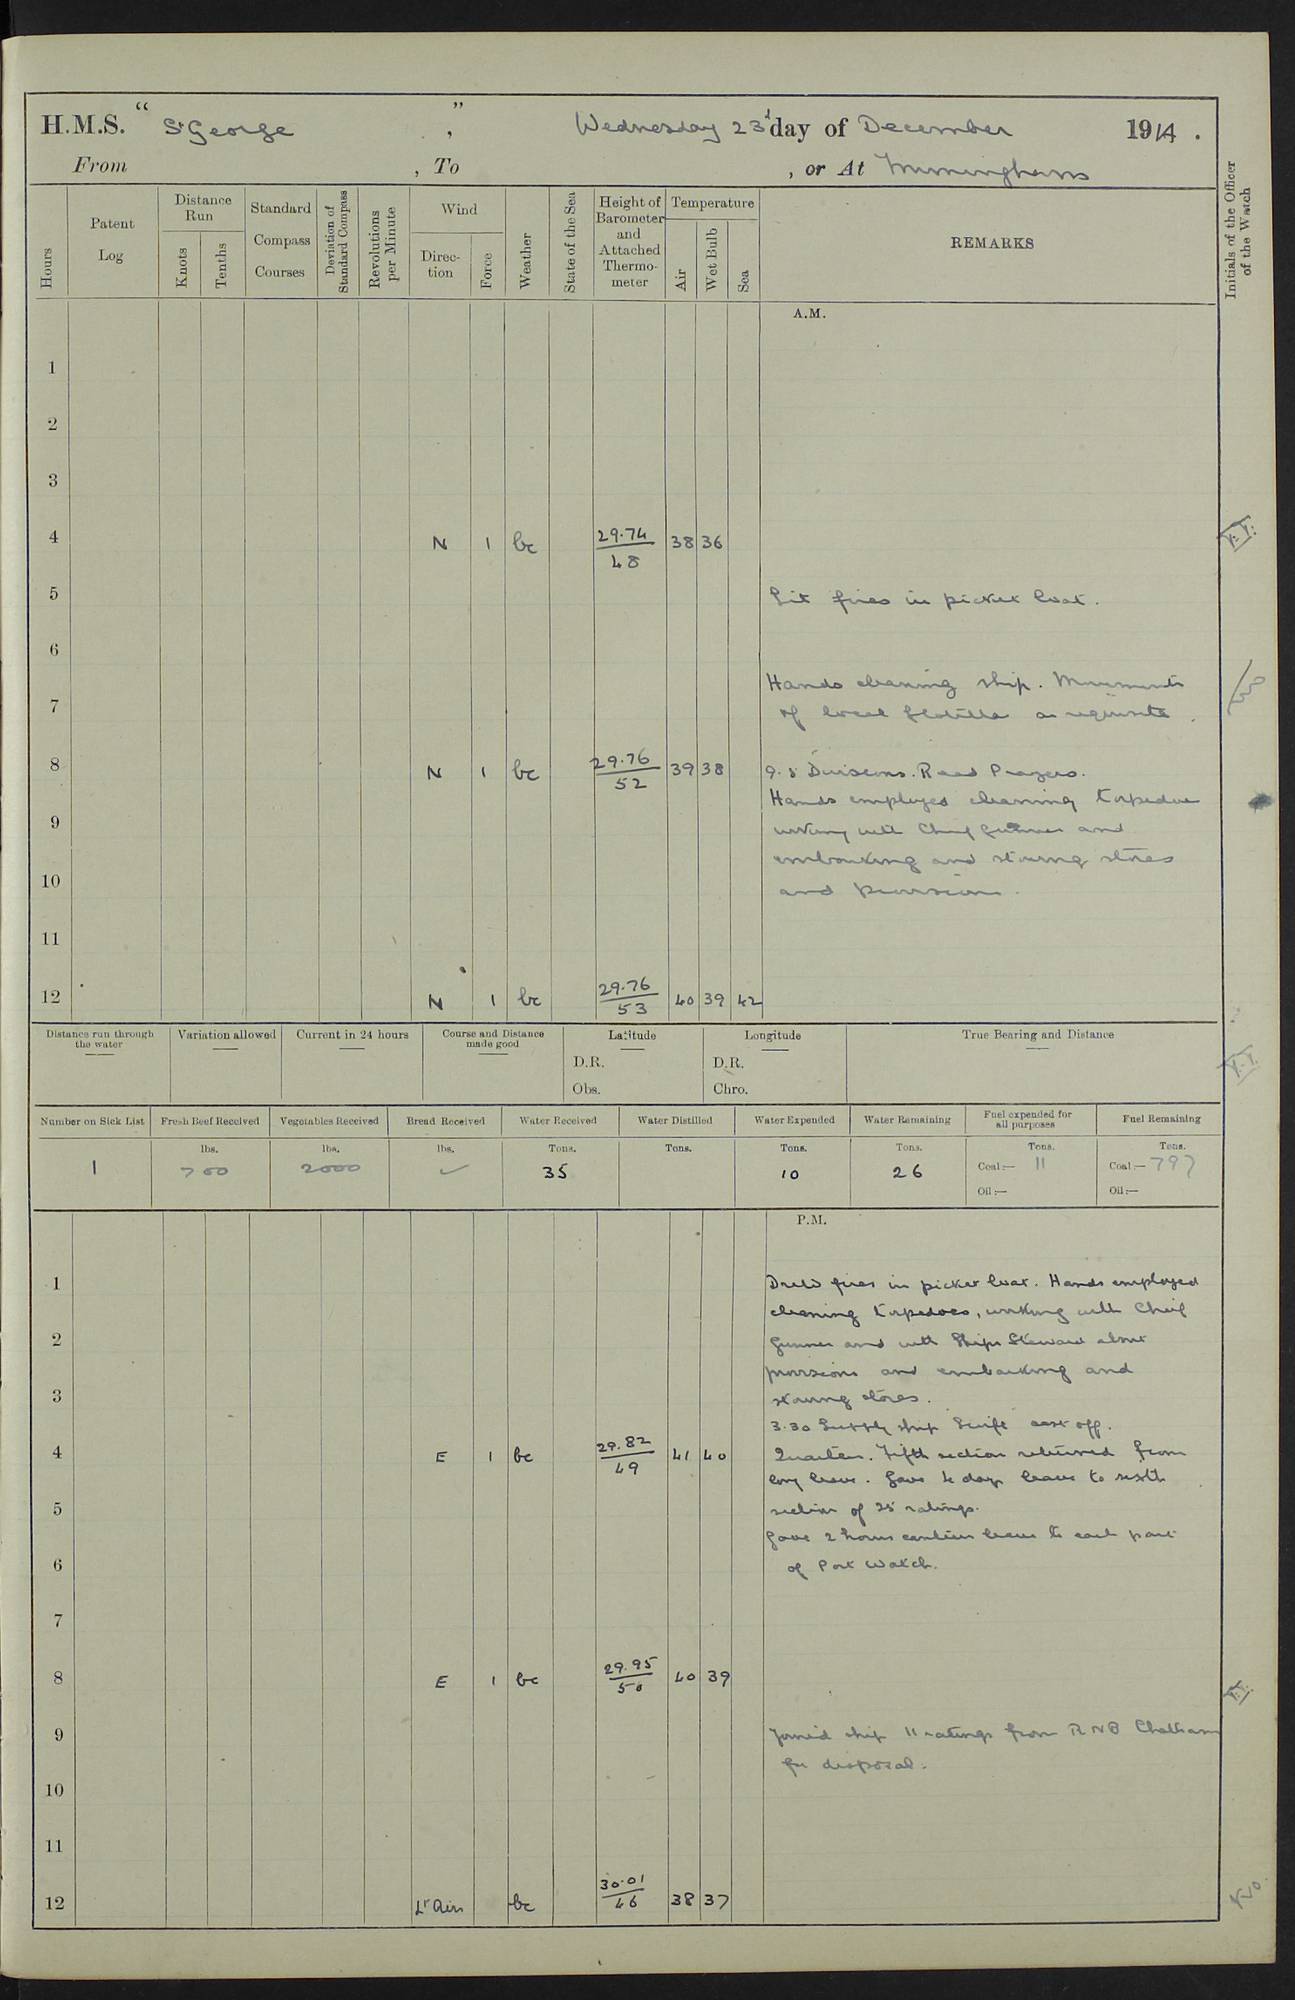 H.M.S. “ St George ” , Wednesday 23d day of December 1914 .
From , To , or At Immingham
Hours
Patent Log
Distance Run
Knots
Tenths
Standard Compass Courses
Deviation of Standard Compass
Revolutions per Minute
Wind
Direction
Force
Weather
State of the Sea
Height of Barometer and Attached Thermometer
Temperature
Air
Wet Bulb
Sea
REMARKS
Initials of the Officer of the Watch
A.M.
1
2
3
4 N 1 bc 29.74/48 38 36
5 Lit fires in picket boat.
6
Hands cleaning ship. Movements
7 of local flotilla as requisite.
8 N 1 bc 29.76/52 39 38 9.5 Divisions. Read Prayers.
Hands employed cleaning torpedoes
9 working with Chief Gunner and
embarking and stowing stores
10 and provisions.
11
12 N 1 bc 29.76/53 40 39 42
Distance run through the water
Variation allowed
Current in 24 hours
Course and Distance made good
Latitude
D.R.
Obs.
Longitude
D.R.
Chro.
True Bearing and Distance
Number on Sick List
1
Fresh Beef Received
lbs.
700
Vegetables Received
lbs.
2000
Bread Received
lbs.
✓
Water Received
Tons.
35
Water Distilled
Tons.
Water Expended
Tons.
10
Water Remaining
Tons.
26
Fuel expended for all purposes
Tons.
Coal:— 11
Oil:—
Fuel Remaining
Tons.
Coal:— 797
Oil:—
P.M.
1 Drew fires in picket boat. Hands employed
cleaning torpedoes, working with Chief
2 Gunner and with Ships Steward about
provisions and embarking and
3 stowing stores.
3.30 Supply ship Swift cast off.
4 E 1 bc 29.82/49 41 40 Quarters. Fifth section returned from
long leave. Gave 4 days leave to sixth
5 section of 25 ratings.
Gave 2 hours canteen leave to each part
6 of Port Watch.
7
8 E 1 bc 29.95/50 40 39
9 Joined ship 11 ratings from RNB Chatham
for disposal.
10
11
12 Lt Airs bc 30.01/46 38 37